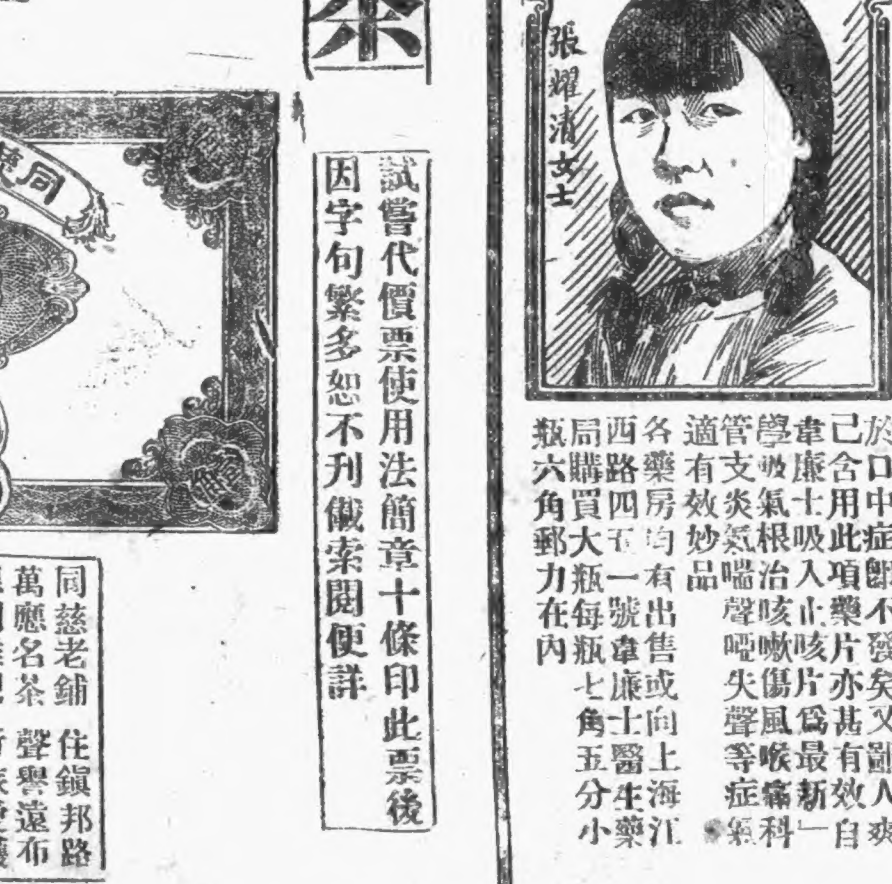 張耀清女士
於口中症卽不發矣又鄙人爽
已含用此項藥片亦甚有效自
韋廉士吸入止咳片爲最新
學吸氣根治咳嗽傷風喉痛科
管支炎氣喘聲啞失聲等症氣
適有效妙品
各藥房均有出售或向上海江
西路四五一號韋廉士醫生藥
局購買大瓶每瓶七角五分小
瓶六角郵力在內
試嘗代價票使用法簡章十條印此票後
因字句繁多恕不刋儎索閱便詳
同
同慈老鋪 住鎭邦路
萬應名茶 聲譽遠布